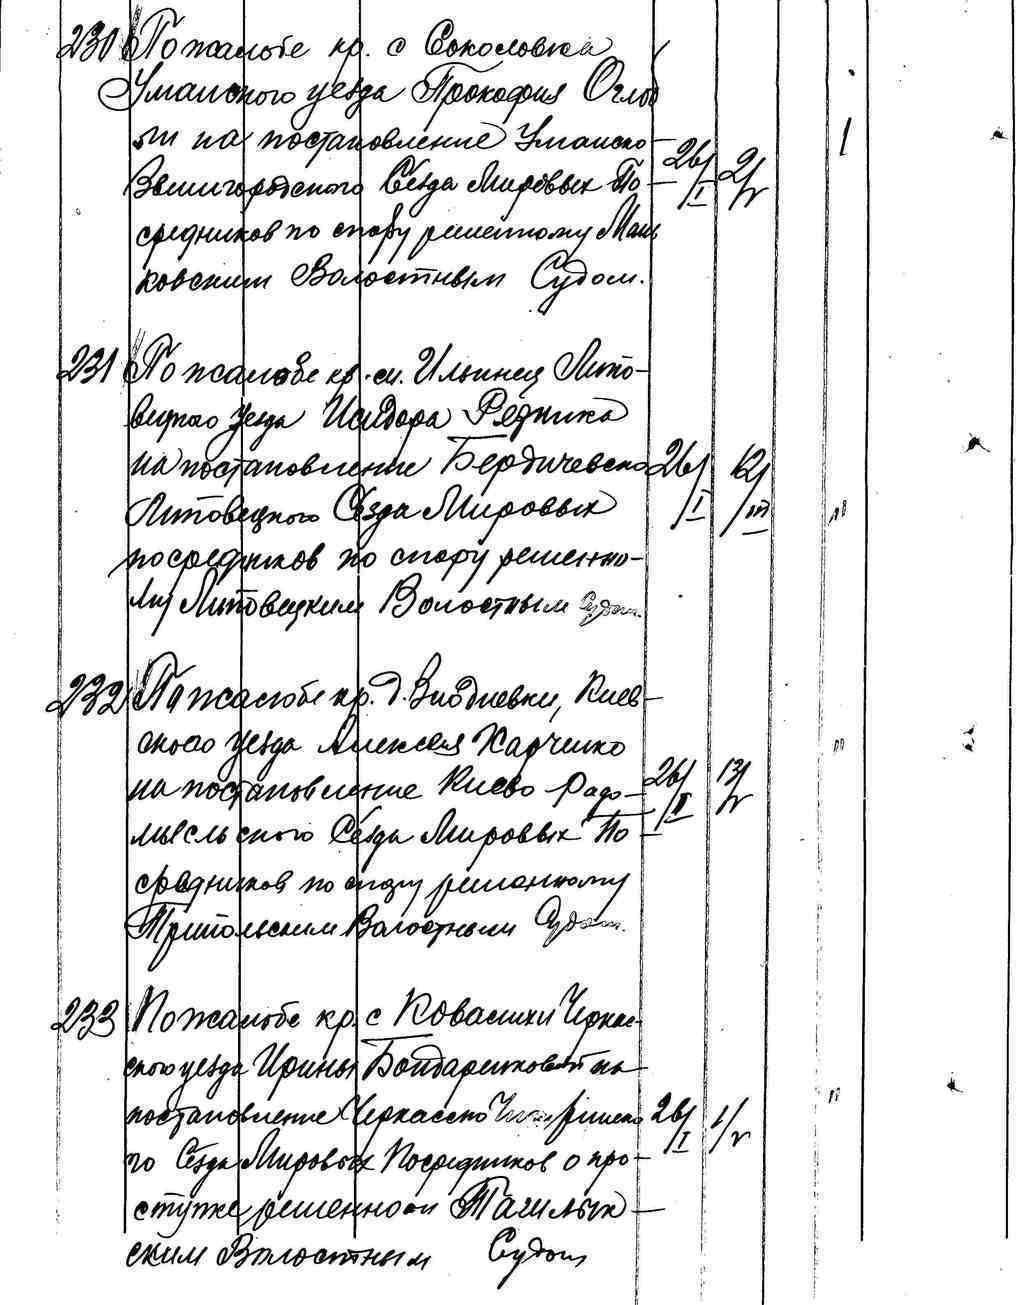 230 По жалобе кр. с Соколовка
Уманского уезда Прокофия Оглоб
ли на постановление Уманско-
Звенигородского Сезда Мировых По- 26/I 2/V 1
средников по спору решенному Мань
ковским Волостным Судом.
231 По жалобе кр. м. Ильинец Липо-
вецкого уезда Исидора Резника
на постановление Бердичевско 26/I 12/III
Липовецкого Сезда Мировых "
посредников по спору решенно-
му Липовецким Волостным Судом.
232 По жалобе кр. д. Киев-
ского уезда Алексея Харченко "
на постановление Киево Радо- 26/II 13/V
мысльского Сезда Мировых По
средников по спору решенному
Трипольским Волостным Судом.
233 По жалобе кр. с Ковалихи Черкас-
ского уезда Ирины Бондаренковой на
постановление Черкасско 26/I 1/V "
го Сезда Мировых Посредников о про-
ступке решенном
ским Волостным Судом